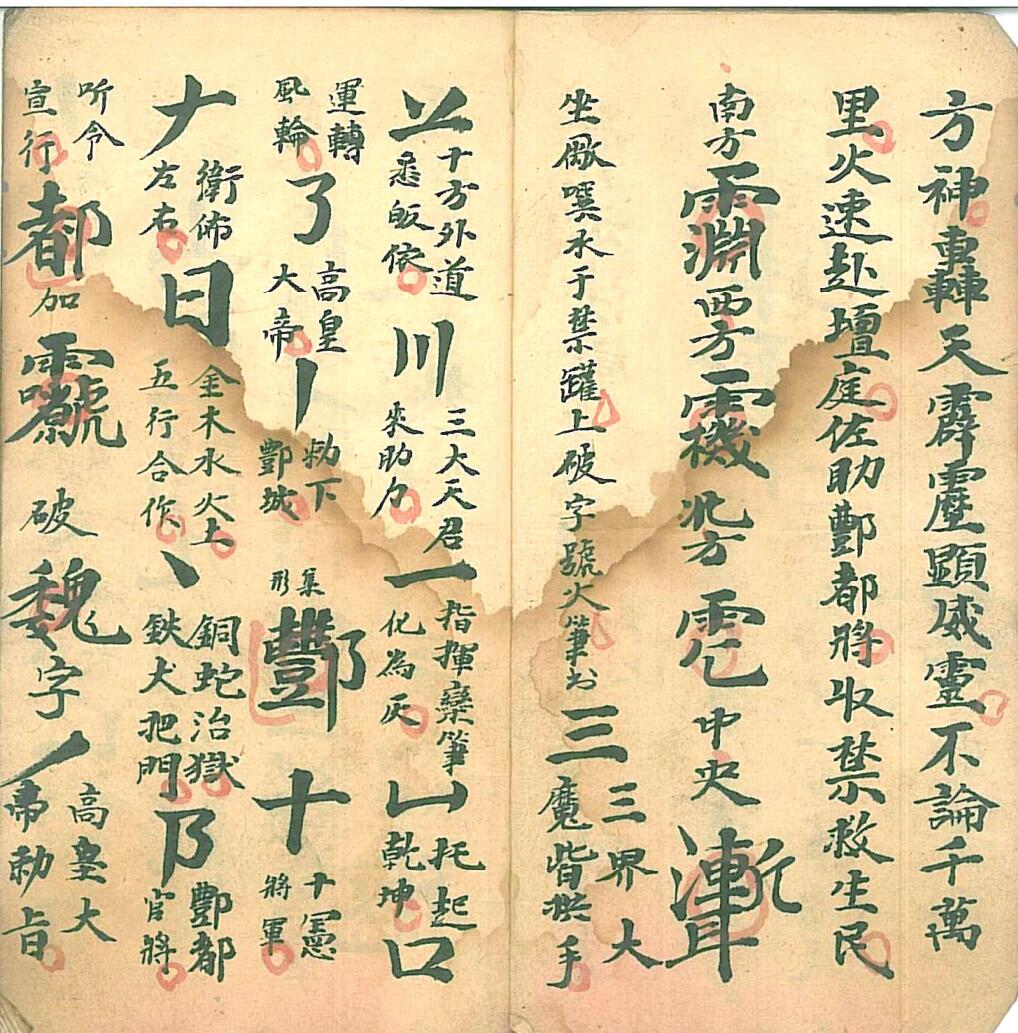 方神轟天霹靂顯威靈不論千萬
里火速赴壇庭佐助酆都將收禁救生民
南方 西方 北方 中央
坐 噀水于禁罐上破字號火筆书三三界大魔皆拱手
十方外道悉皈依川三大天君來助力一指揮欒筆化為灰凵托起乾坤口
運轉風輪了高皇大帝丨勅下酆城集形酆十十憲將軍
𠂇衛佈左右日金木水火土五行合作丶銅蛇治獄鉄犬把門阝酆都官將
听令宣行都加 破 字丿高皇大帝勅旨